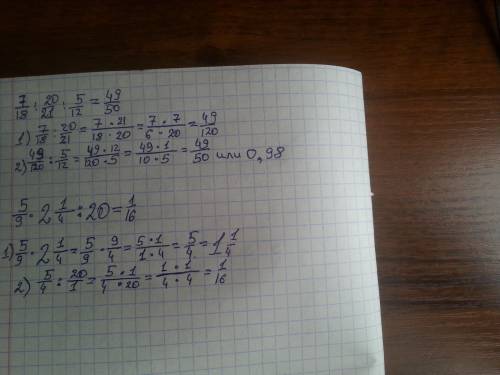 7/18 : 20/21 : 5/12 = 49/50
1) 7/18 : 20/21 = 7 · 21/18 · 20 = 7 · 7/6 · 20 = 49/120
2) 49/120 : 5/12 = 49 · 12/120 · 5 = 49 · 1/10 · 5 = 49/50 или 0,98
5/9 · 2 1/4 : 20 = 1/16
1) 5/9 · 2 1/4 = 5/9 · 9/4 = 5 · 1/1 · 4 = 5/4 = 1 1/4
2) 5/4 : 20/1 = 5 · 1/4 · 20 = 1 · 1/4 · 4 = 1/16